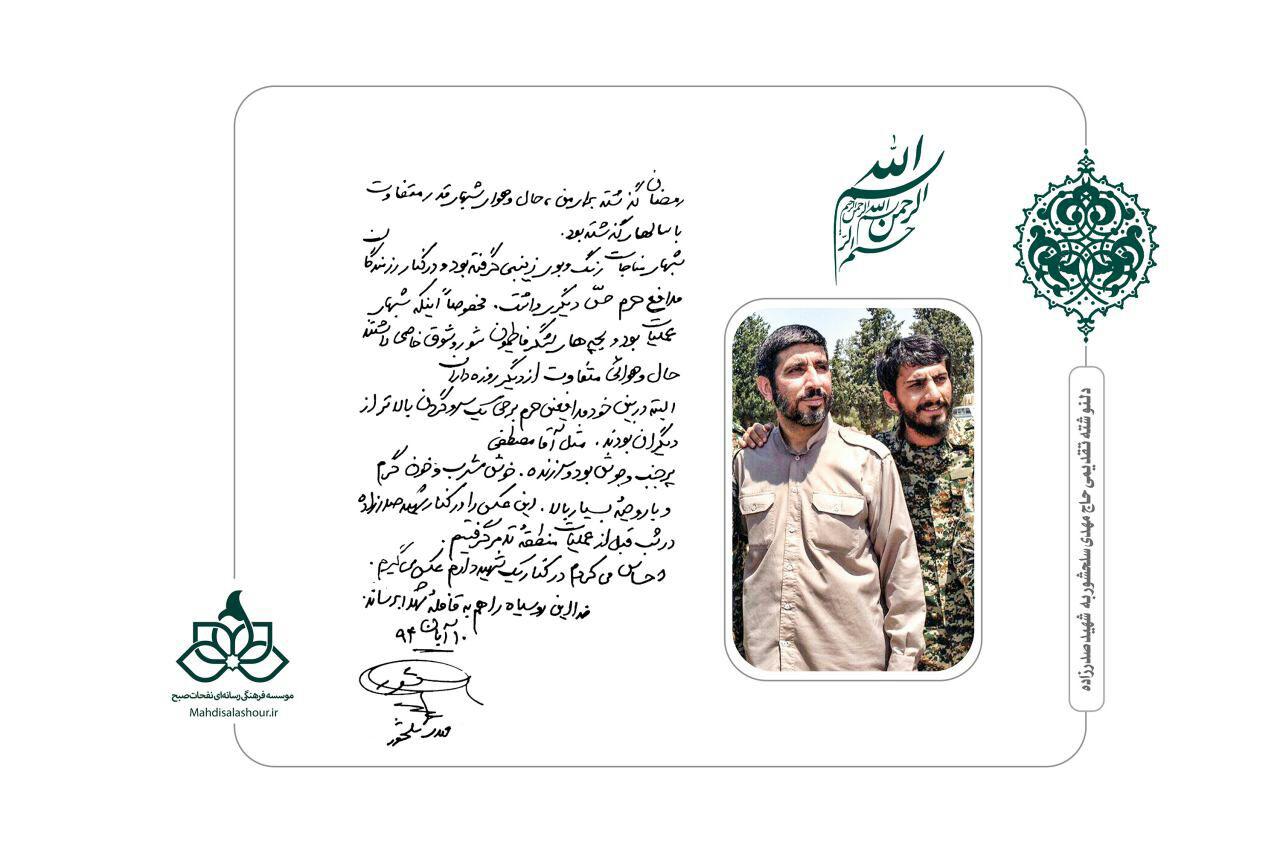 بسم الله الرحمن الرحیم
رمضان گذشته برای من، حال و هوای شبهای قدر متفاوت
با سالهای گذشته بود.
شبهای مناجات رنگ و بوی زینبی گرفته بود و در کنار رزمندگان
مدافع حرم حسّ دیگری داشت. مخصوصاً اینکه شبهای
عملیات بود و بچه های لشگر فاطمیون شور و شوق خاصی داشتند
حال و هوائی متفاوت از دیگر روزه داران
البته در بین خود مدافعین حرم برخی یک سر و گردن بالاتر از
دیگران بودند. مثل آقا مصطفی
پر جنب و جوش بود و سرزنده. خوش مشرب و خون گرم
و با روحیهٔ بسیار بالا. این عکس را در کنار شهید صدرزاده
در شب قبل از عملیات منطقهٔ تدمر گرفتیم.
احساس می کردم در کنار یک شهید دارم عکس می گیرم.
خدا این روسیاه را هم به قافلهٔ شهدا برساند.
۱۰ آبان ۹۴
مهدی سلحشور
دلنوشته تقدیمی حاج مهدی سلحشور به شهید صدرزاده
موسسه فرهنگی رسانه‌ای نفحات صبح
Mahdisalashour.ir